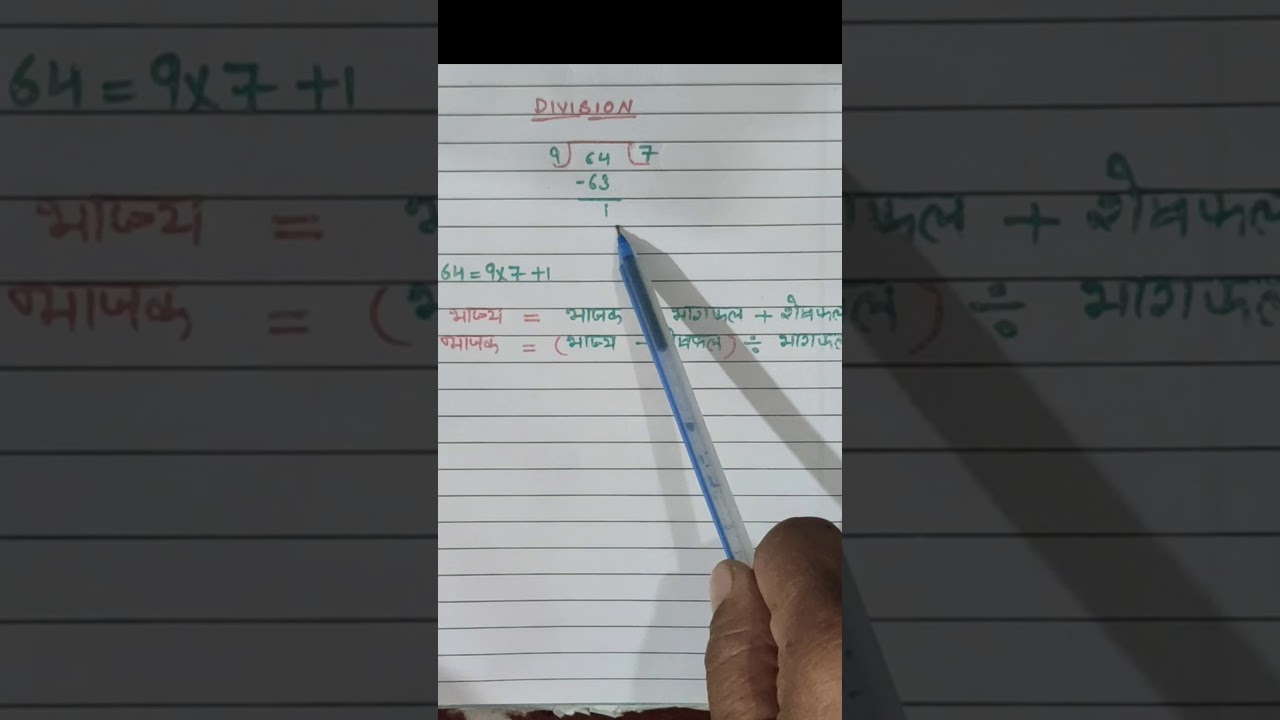 DIVISION
9) 64 (7
-63
1
64 = 9x7 +1
भाज्य = भाजक भागफल + शेषफल
भाजक = (भाज्य - शेषफल) ÷ भागफल